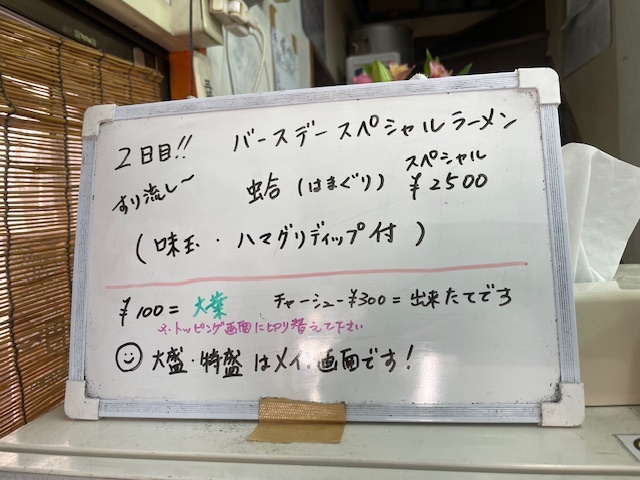 2日目!! バースデースペシャルラーメン
すり流し〜 蛤 (はまぐり) スペシャル ¥2500
(味玉・ハマグリディップ付)
¥100=大葉 チャーシュー¥300=出来たてです
※トッピング画面に切り替えて下さい
大盛・特盛はメイン画面です!